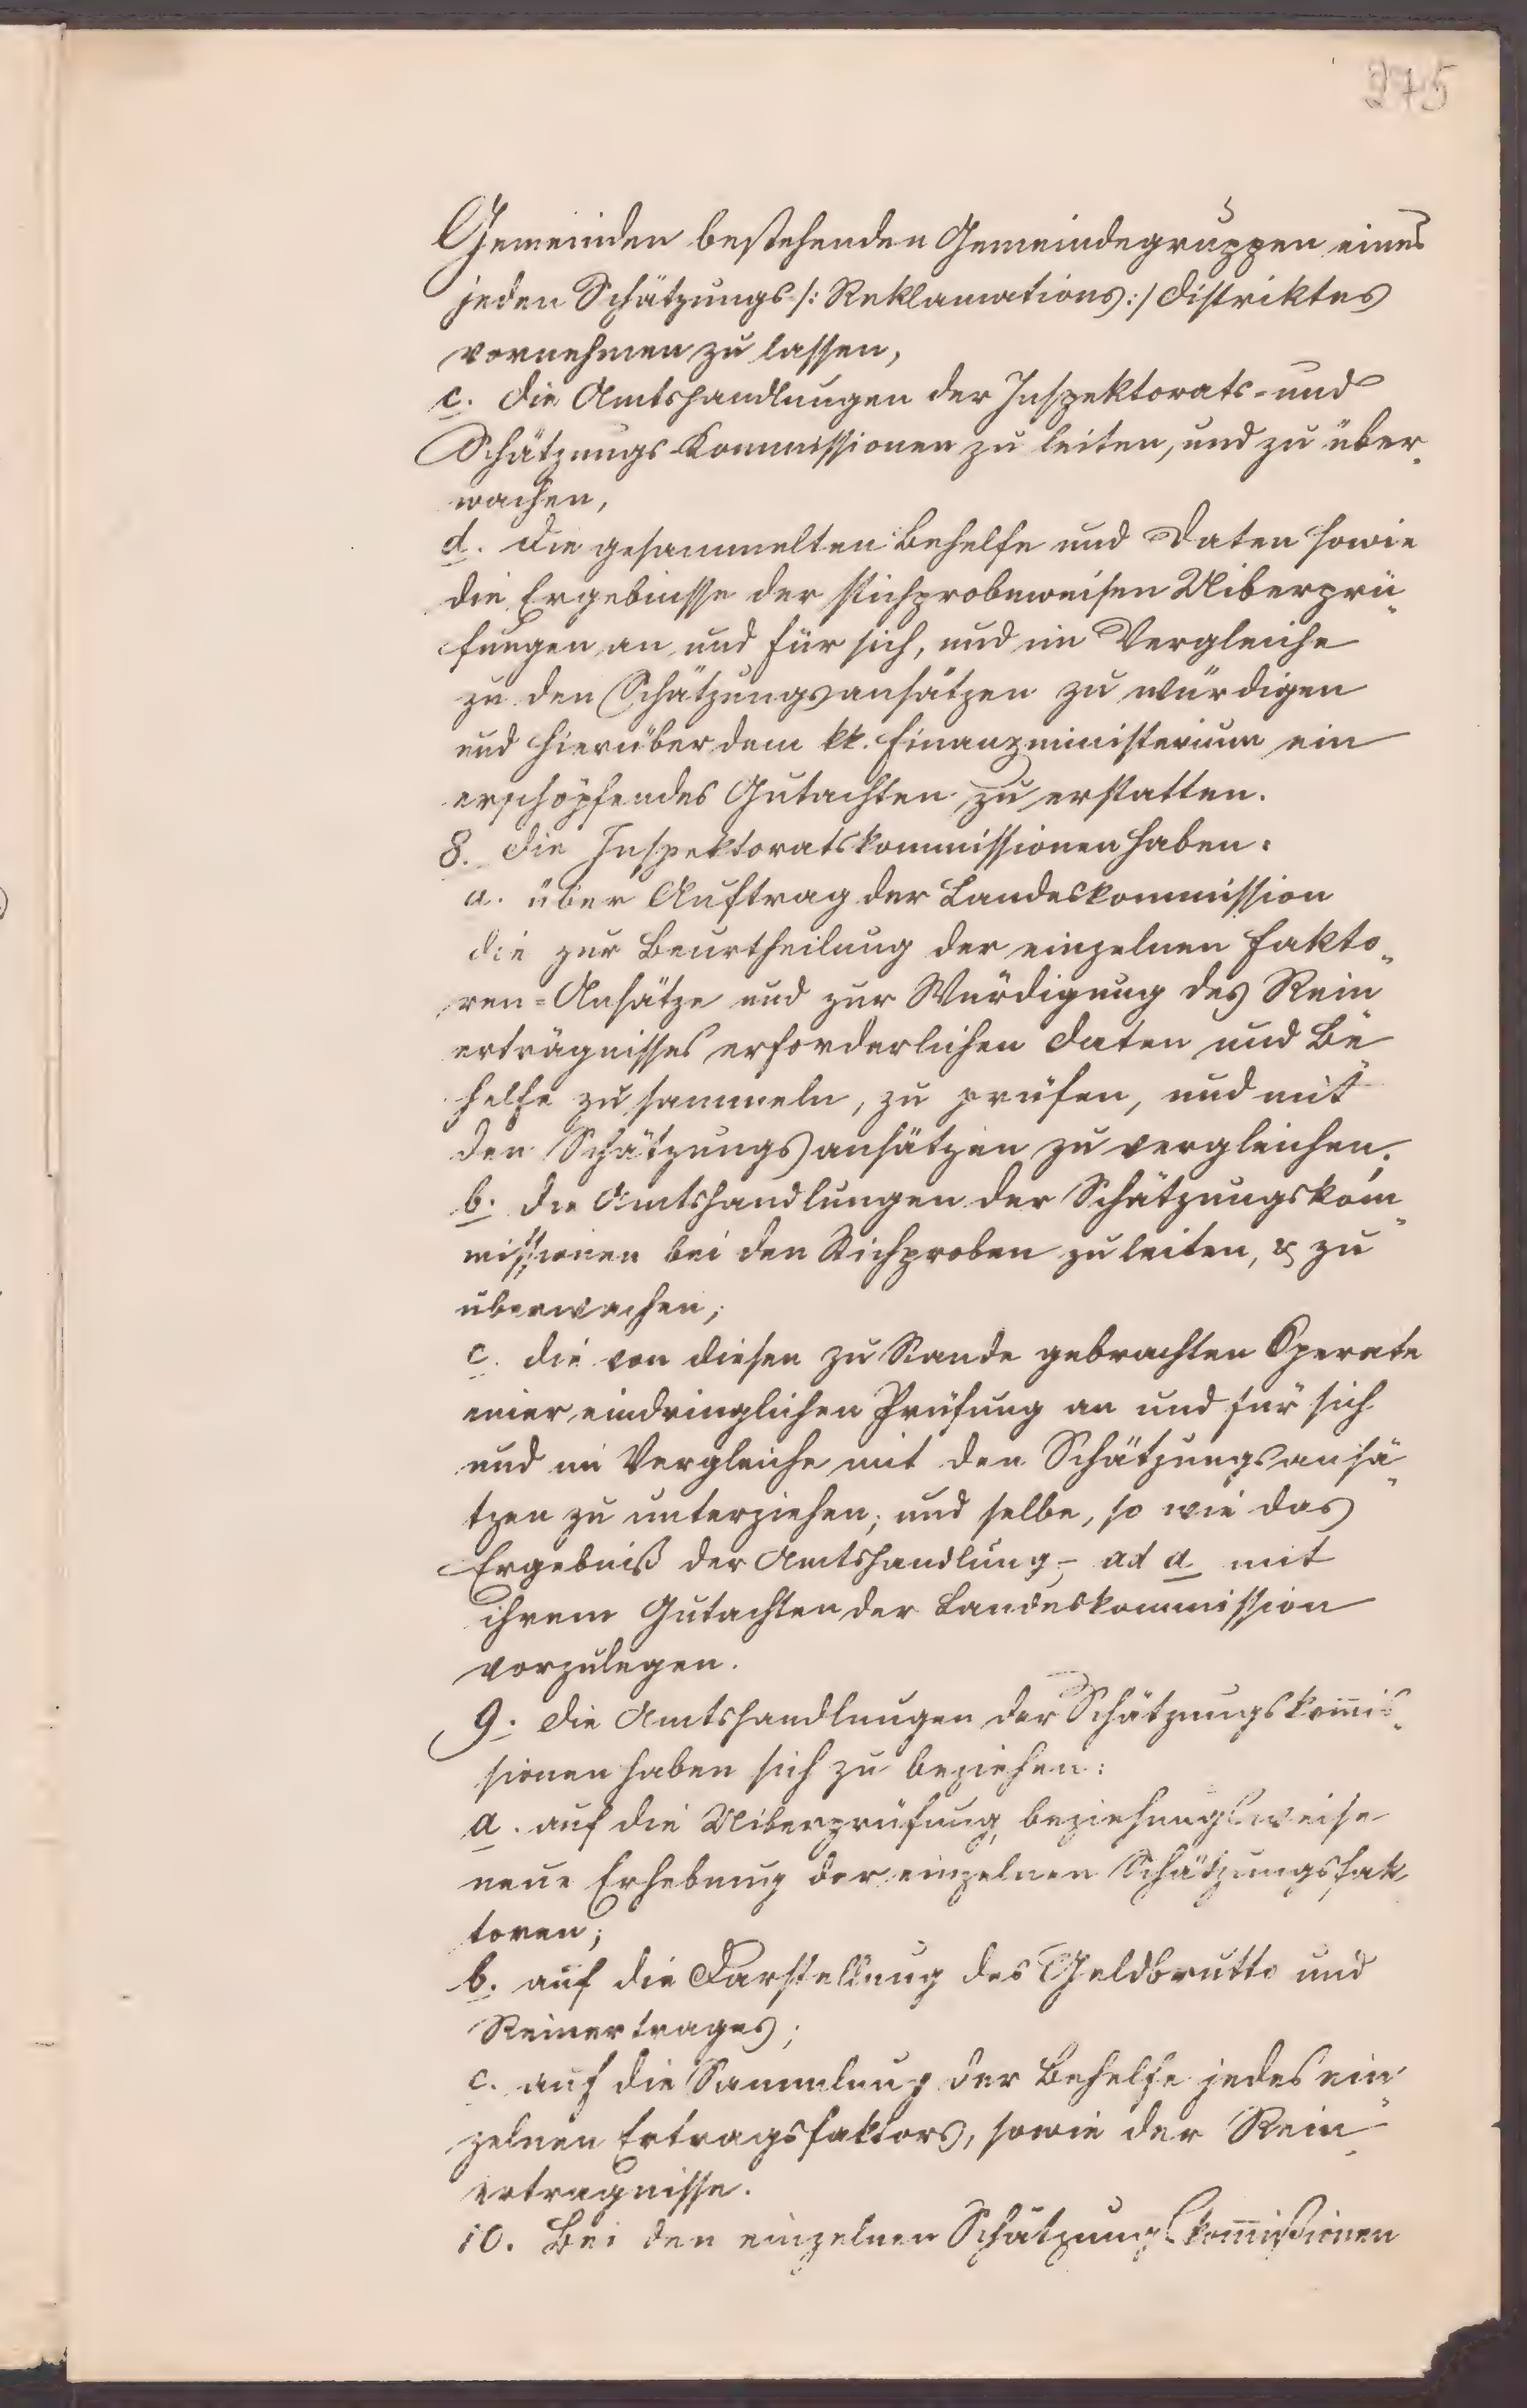 275
Gemeinden bestehenden Gemeindegruppen eines
jeden Schätzungs /: Reklamations :/ distriktes
vornehmen zu lassen,
c. die Amtshandlungen der Inspektorats- und
Schätzungs-Kommissionen zu leiten, und zu über„
wachen,
d. die gesammelten Behelfe und Daten sowie
die Ergebnisse der stichprobeweisen Uiberprü„
fungen an und für sich, und im Vergleiche
zu den Schätzungsansätzen zu würdigen
und hierüber dem kk. Finanzministerium ein
erschöpfendes Gutachten zu erstatten.
8. die Inspektoratskommissionen haben:
a. über Auftrag der Landeskommission
die zur Beurtheilung der einzelnen Fakto„
ren=Ansätze und zur Würdigung des Rein
erträgnisses erforderlichen Daten und Be„
helfe zu sammeln, zu prüfen, und mit
den Schätzungsansätzen zu vergleichen;
b. die Amtshandlungen der Schätzungskom„
missionen bei den Stichproben zu leiten, & zu
überwachen;
c. die von diesen zu Stande gebrachten Operate
einer eindringlichen Prüfung an und für sich
und im Vergleiche mit den Schätzungsansä„
tzen zu unterziehen; und selbe, so wie das
Ergebniß der Amtshandlung, ad a mit
ihrem Gutachten der Landeskommission
vorzulegen.
9. die Amtshandlungen der Schätzungskom̅is„
sionen haben sich zu beziehen:
a. auf die Uiberprüfung, beziehungsweise
neue Erhebung der einzelnen Schätzungsfak
toren;
b. auf die Darstellung des Geldbrutto und
Reinertrages;
c. auf die Sammlung der Behelfe jedes ein„
zelnen Ertragsfaktors, sowie der Rein„
erträgnisse.
10. Bei den einzelnen Schätzungskom̅ißionen